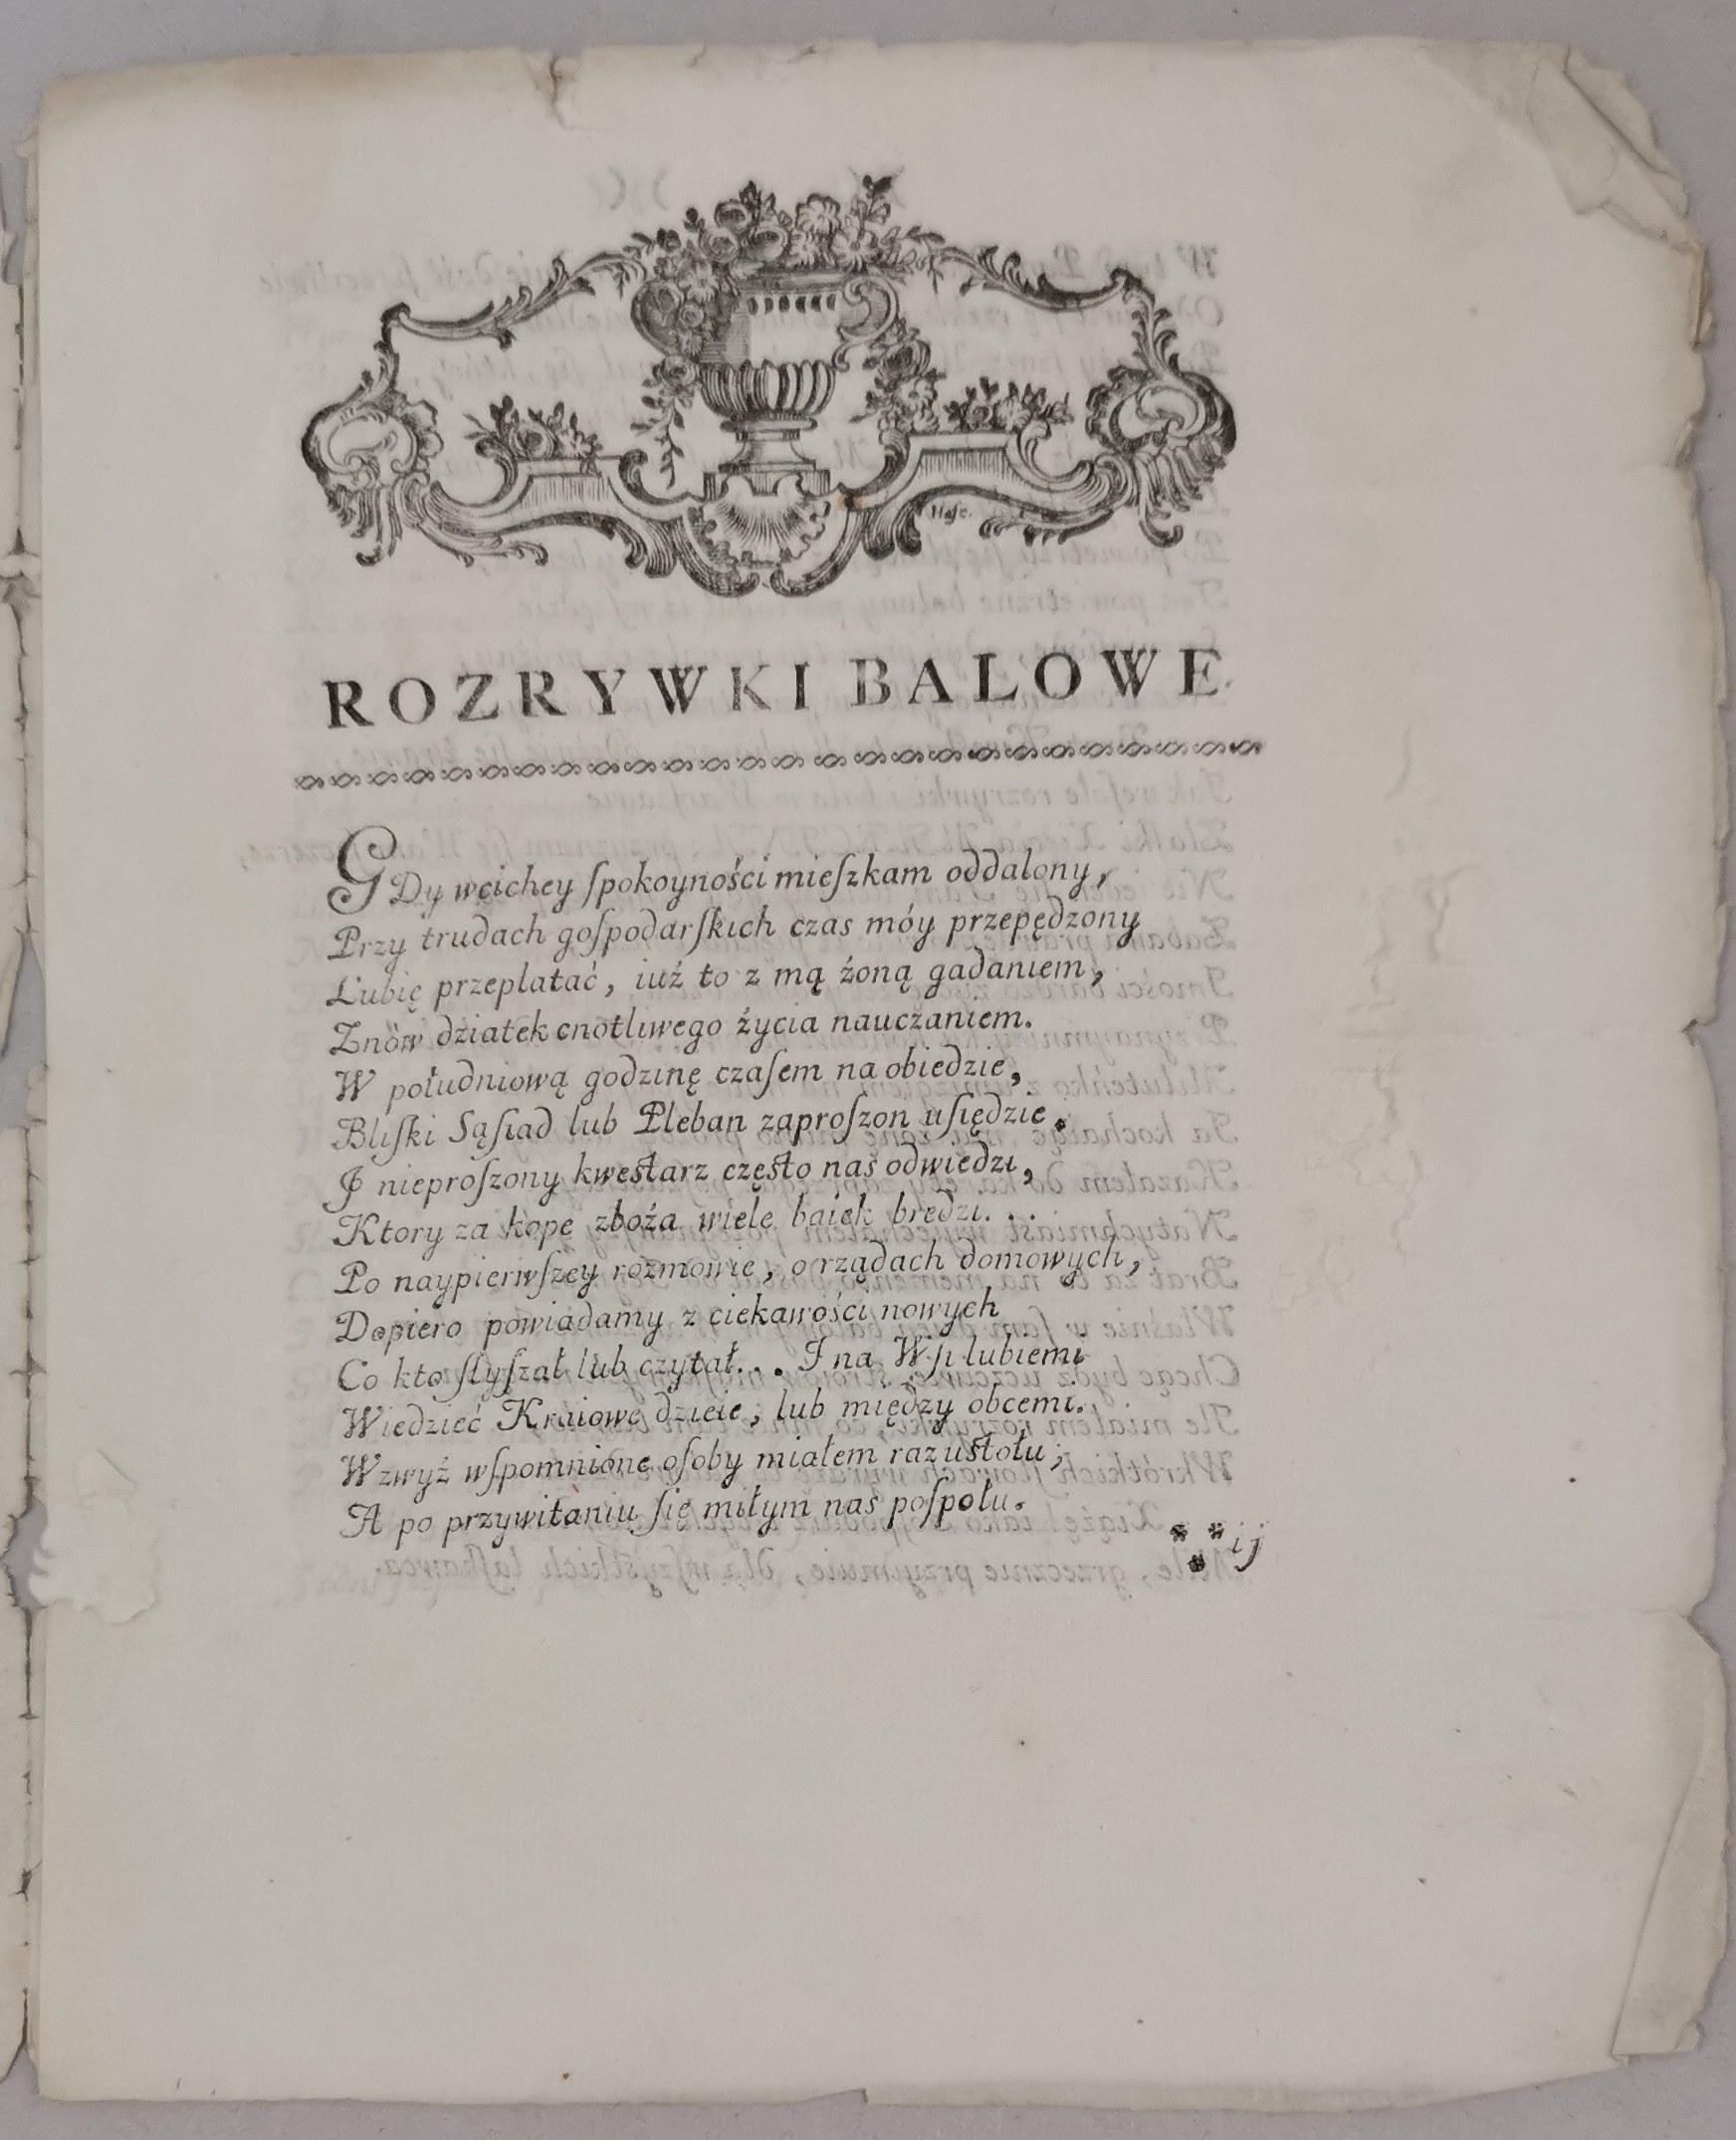 Hafc.
ROZRYWKI BALOWE.
GDy wcichey ſpokoynośći mieſzkam oddalony,
Przy trudach goſpodarſkich czas móy przepędzony
Lubię przeplatać, iuż to z mą żoną gadaniem,
Znów dziatek cnotliwego życia nauczaniem.
W południową godzinę czaſem na obiedzie,
Bliſki Sąſiad lub Pleban zaproſzon uſiędzie.
I nieproſzony kwestarz często nas odwiedzi,
Ktory za kope zboża wiele baiek bredzi...
Po naypierwſzey rozmowie, o rządach domowych,
Dopiero powiadamy z ciekawości nowych
Co kto ſlyſzał lub czytał... I na Wſi lubiemi
Wiedzieć Kraiowe dzieie, lub między obcemi.
Wzwyż wſpomnione oſoby miałem raz ustołu;
A po przywitaniu ſię miłym nas poſpołu.
* * * ij